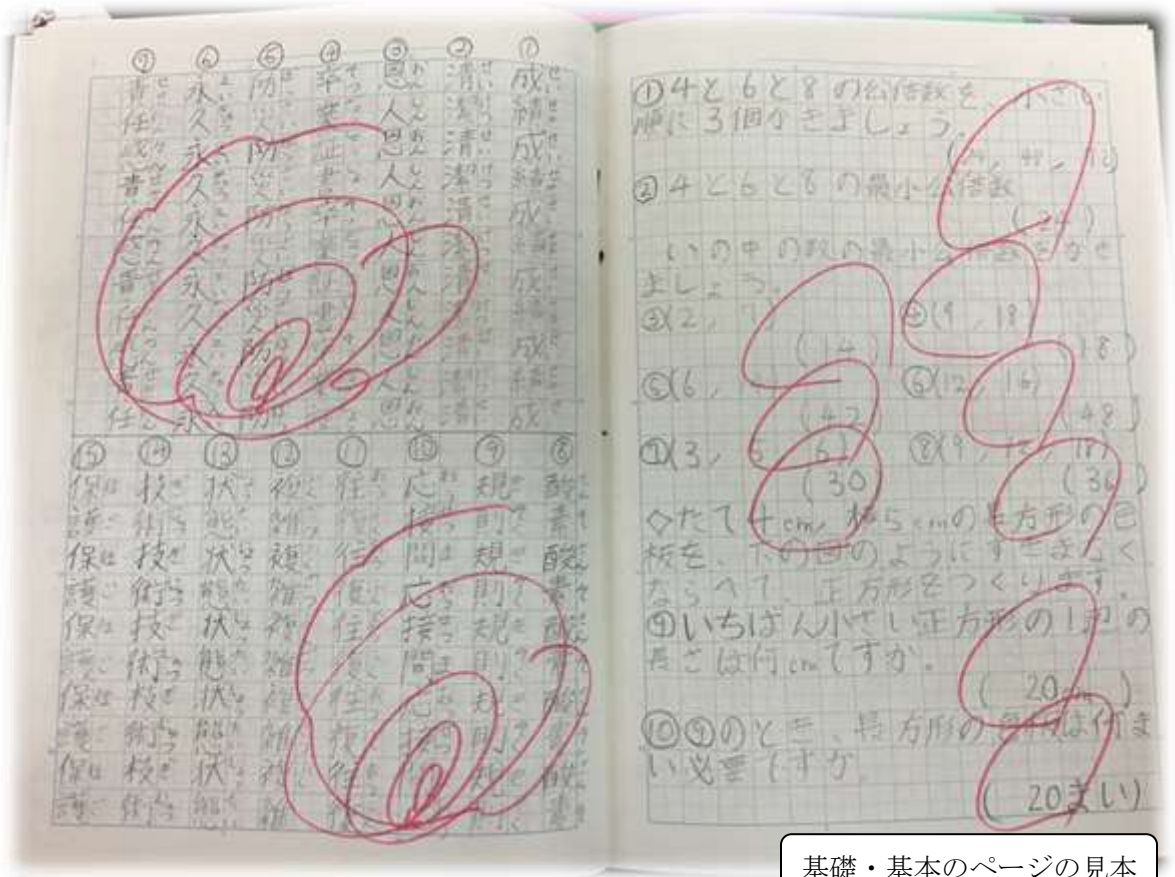 ①成績成績成績成績成績成
②清潔清潔清潔清潔清潔清
③恩人恩人恩人恩人恩人恩
④卒業証書卒業証書卒業証
⑤防災防災防災防災防災防
⑥永久永久永久永久永久永
⑦責任感責任感責任感責任
⑧酸素酸素酸素酸素酸素
⑨規則規則規則規則規則
⑩応接間応接間応接間応
⑪往復往復往復往復往復
⑫複雑複雑複雑複雑複雑
⑬状態状態状態状態状態
⑭技術技術技術技術技術
⑮保護保護保護保護保護
①4と6と8の公倍数を、小さい
順に3個かきましょう。
(24, 48, 72)
②4と6と8の最小公倍数
(24)
()の中の数の最小公倍数をかき
ましょう。
③(2, 7) ④(9, 18)
(14) (18)
⑤(6, ⑥(12, 16)
(42) (48)
⑦(3, 5, 6) ⑧(9, 12, 18)
(30) (36)
◇たて4cm、横5cmの長方形の色
板を、下の図のようにすきまなく
ならべて、正方形をつくります。
⑨いちばん小さい正方形の1辺の
長さは何cmですか。
(20cm)
⑩⑨のとき、長方形の色板は何ま
い必要ですか。
(20まい)
基礎・基本のページの見本